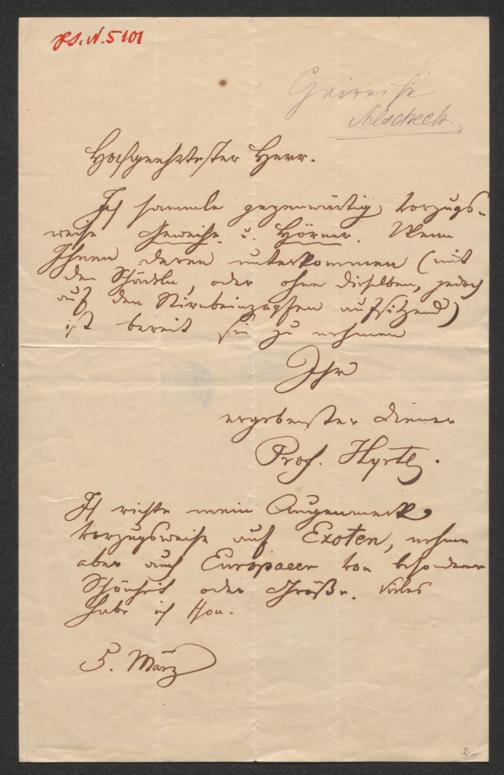 Hs. N. 5101
Geweihe
Hochgeehrtester Herr.
Ich sammle gegenwärtig vorzugs-
weise Geweihe u. Hörner. Wenn
Ihnen deren unterkommen (mit
den Schädeln, oder ohne dieselben, jedoch
auf den Stirnbeinzapfen aufsitzend)
ist bereit sie zu nehmen
Ihr
ergebenster Diener
Prof. Hyrtl.
Ich richte mein Augenmerk
vorzugsweise auf Exoten, nehme
aber auch Europaeer von besonderer
Schönheit oder Größe. Vieles
habe ich schon.
5. März
2